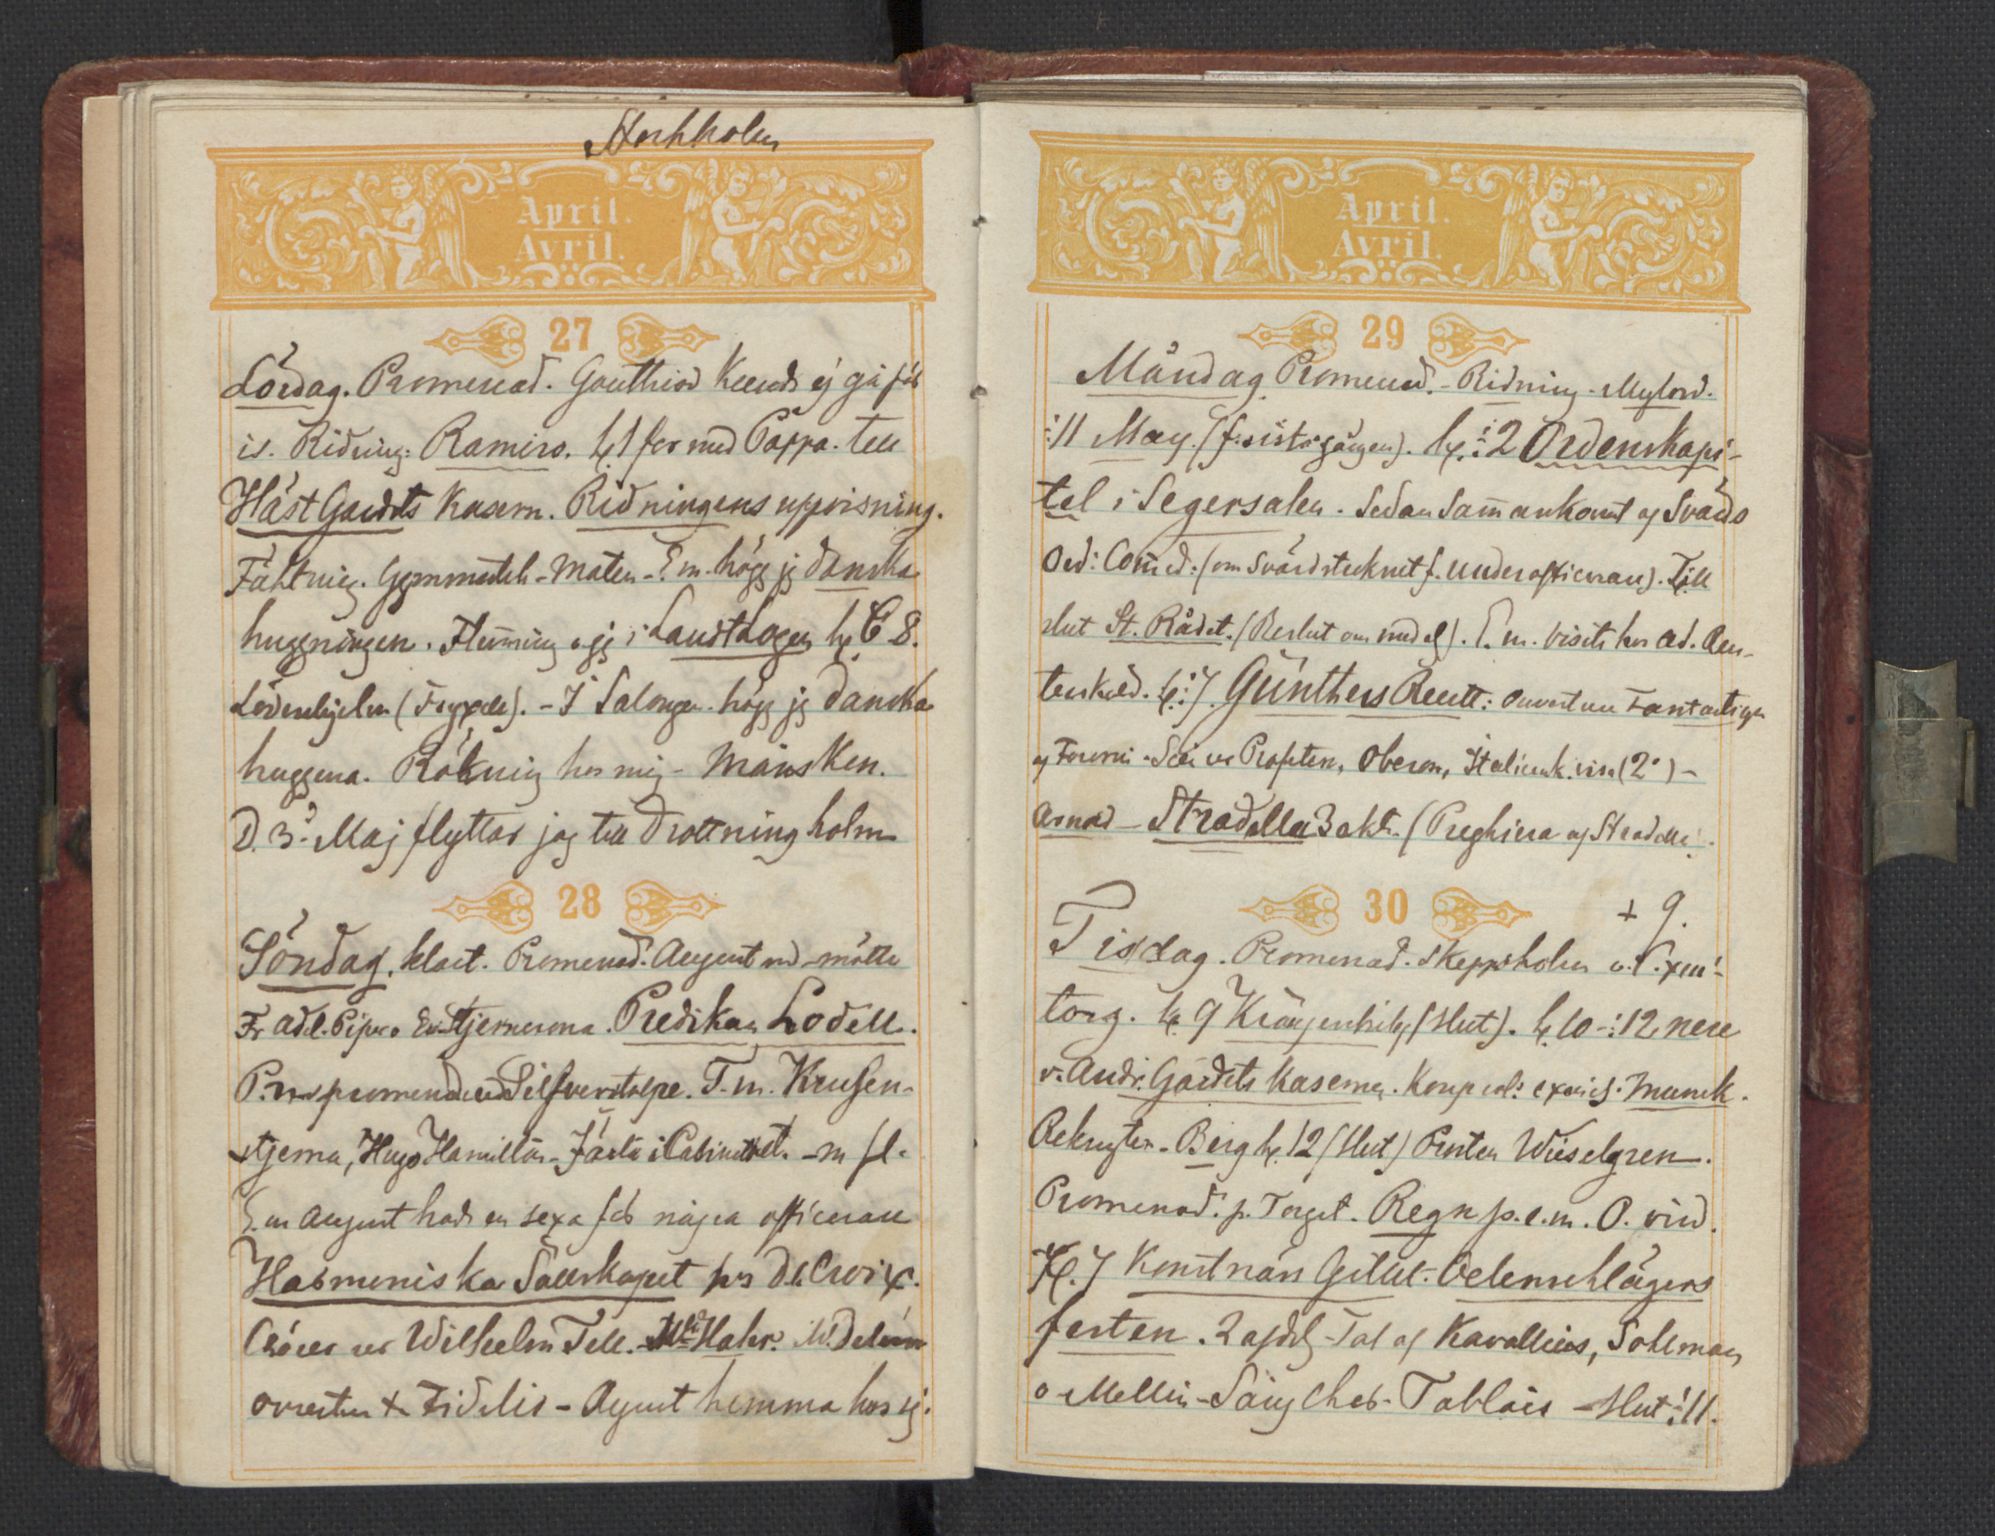 Stockholm
April.
Avril.
27
Lördag. Promenad. Gauthiod kunde ej gå för
is. Ridning: Ramiro. kl 1 for med Pappa till
HästGardets Kasern. Ridningens uppvisning.
Fäktning. Gymnastik - Maten - E.m. högg jg danska
huggningen. Flemming o jg i LandtLogen kl. 8.
Löwenhjelm (Fryxell). - I Salongen högg jg danska
huggena. Rökning hos mig - Månsken.
D. 3 Maj flyttar jag till Drottningholm
28
Söndag. klart. Promenad. August md - mötte
Fr Adel. Piper o Ew. Stjernerona. Predikan Lodell.
P.m promenad md Silfverstolpe. T.m. Krusen-
stjerna, Hugo Hamilton - i Cabinettet - m fl.
E.m August hade en sexa för några officerare
Harmoniska Sällskapet hos De la Croix.
Chörer ur Wilhelm Tell. - Mll Hahr.
ouverturen t. Fidelio - August hemma hos sig.
April.
Avril.
29
Måndag Promenad. - Ridning - Mylord.
11 May. (f. sista gången). kl. 2 Ordenskapi-
tel i Segersalen. Sedan Samankomst af Svärds
Ord: Comed: (om Svärdstecknet f. underofficerare). Till
slut St. Rådet. (Beslut om med ). E. m. visite hos Ad. Ren-
terskiöld. kl. 7. Günthers Recett: ouverture Fantastique
af - Scen ur Profeten, Oberon, Italiensk visa (2) -
- Stradella 3 akt. (Preghiera af Stradella.
30
+ 9.
Tisdag. Promenad. Skeppsholm
torg. kl 9 Krigsenhet (slut). kl. 10 - 12 nere
v. Andr. Gardets Kasern. Korprals exercis. Munck.
Rekryter - Berg kl. 12 (slut) Prosten Wieselgren.
Promenad. p. Torget. Regn p. e.m. O. vind.
Kl. 7 Konstnärs Gillet. Oelenschlägers
festen. 2 afdelg - Tal af Kavallius, Sohlman
o Mellin - Sång Chör - Tablåer - slut 11.